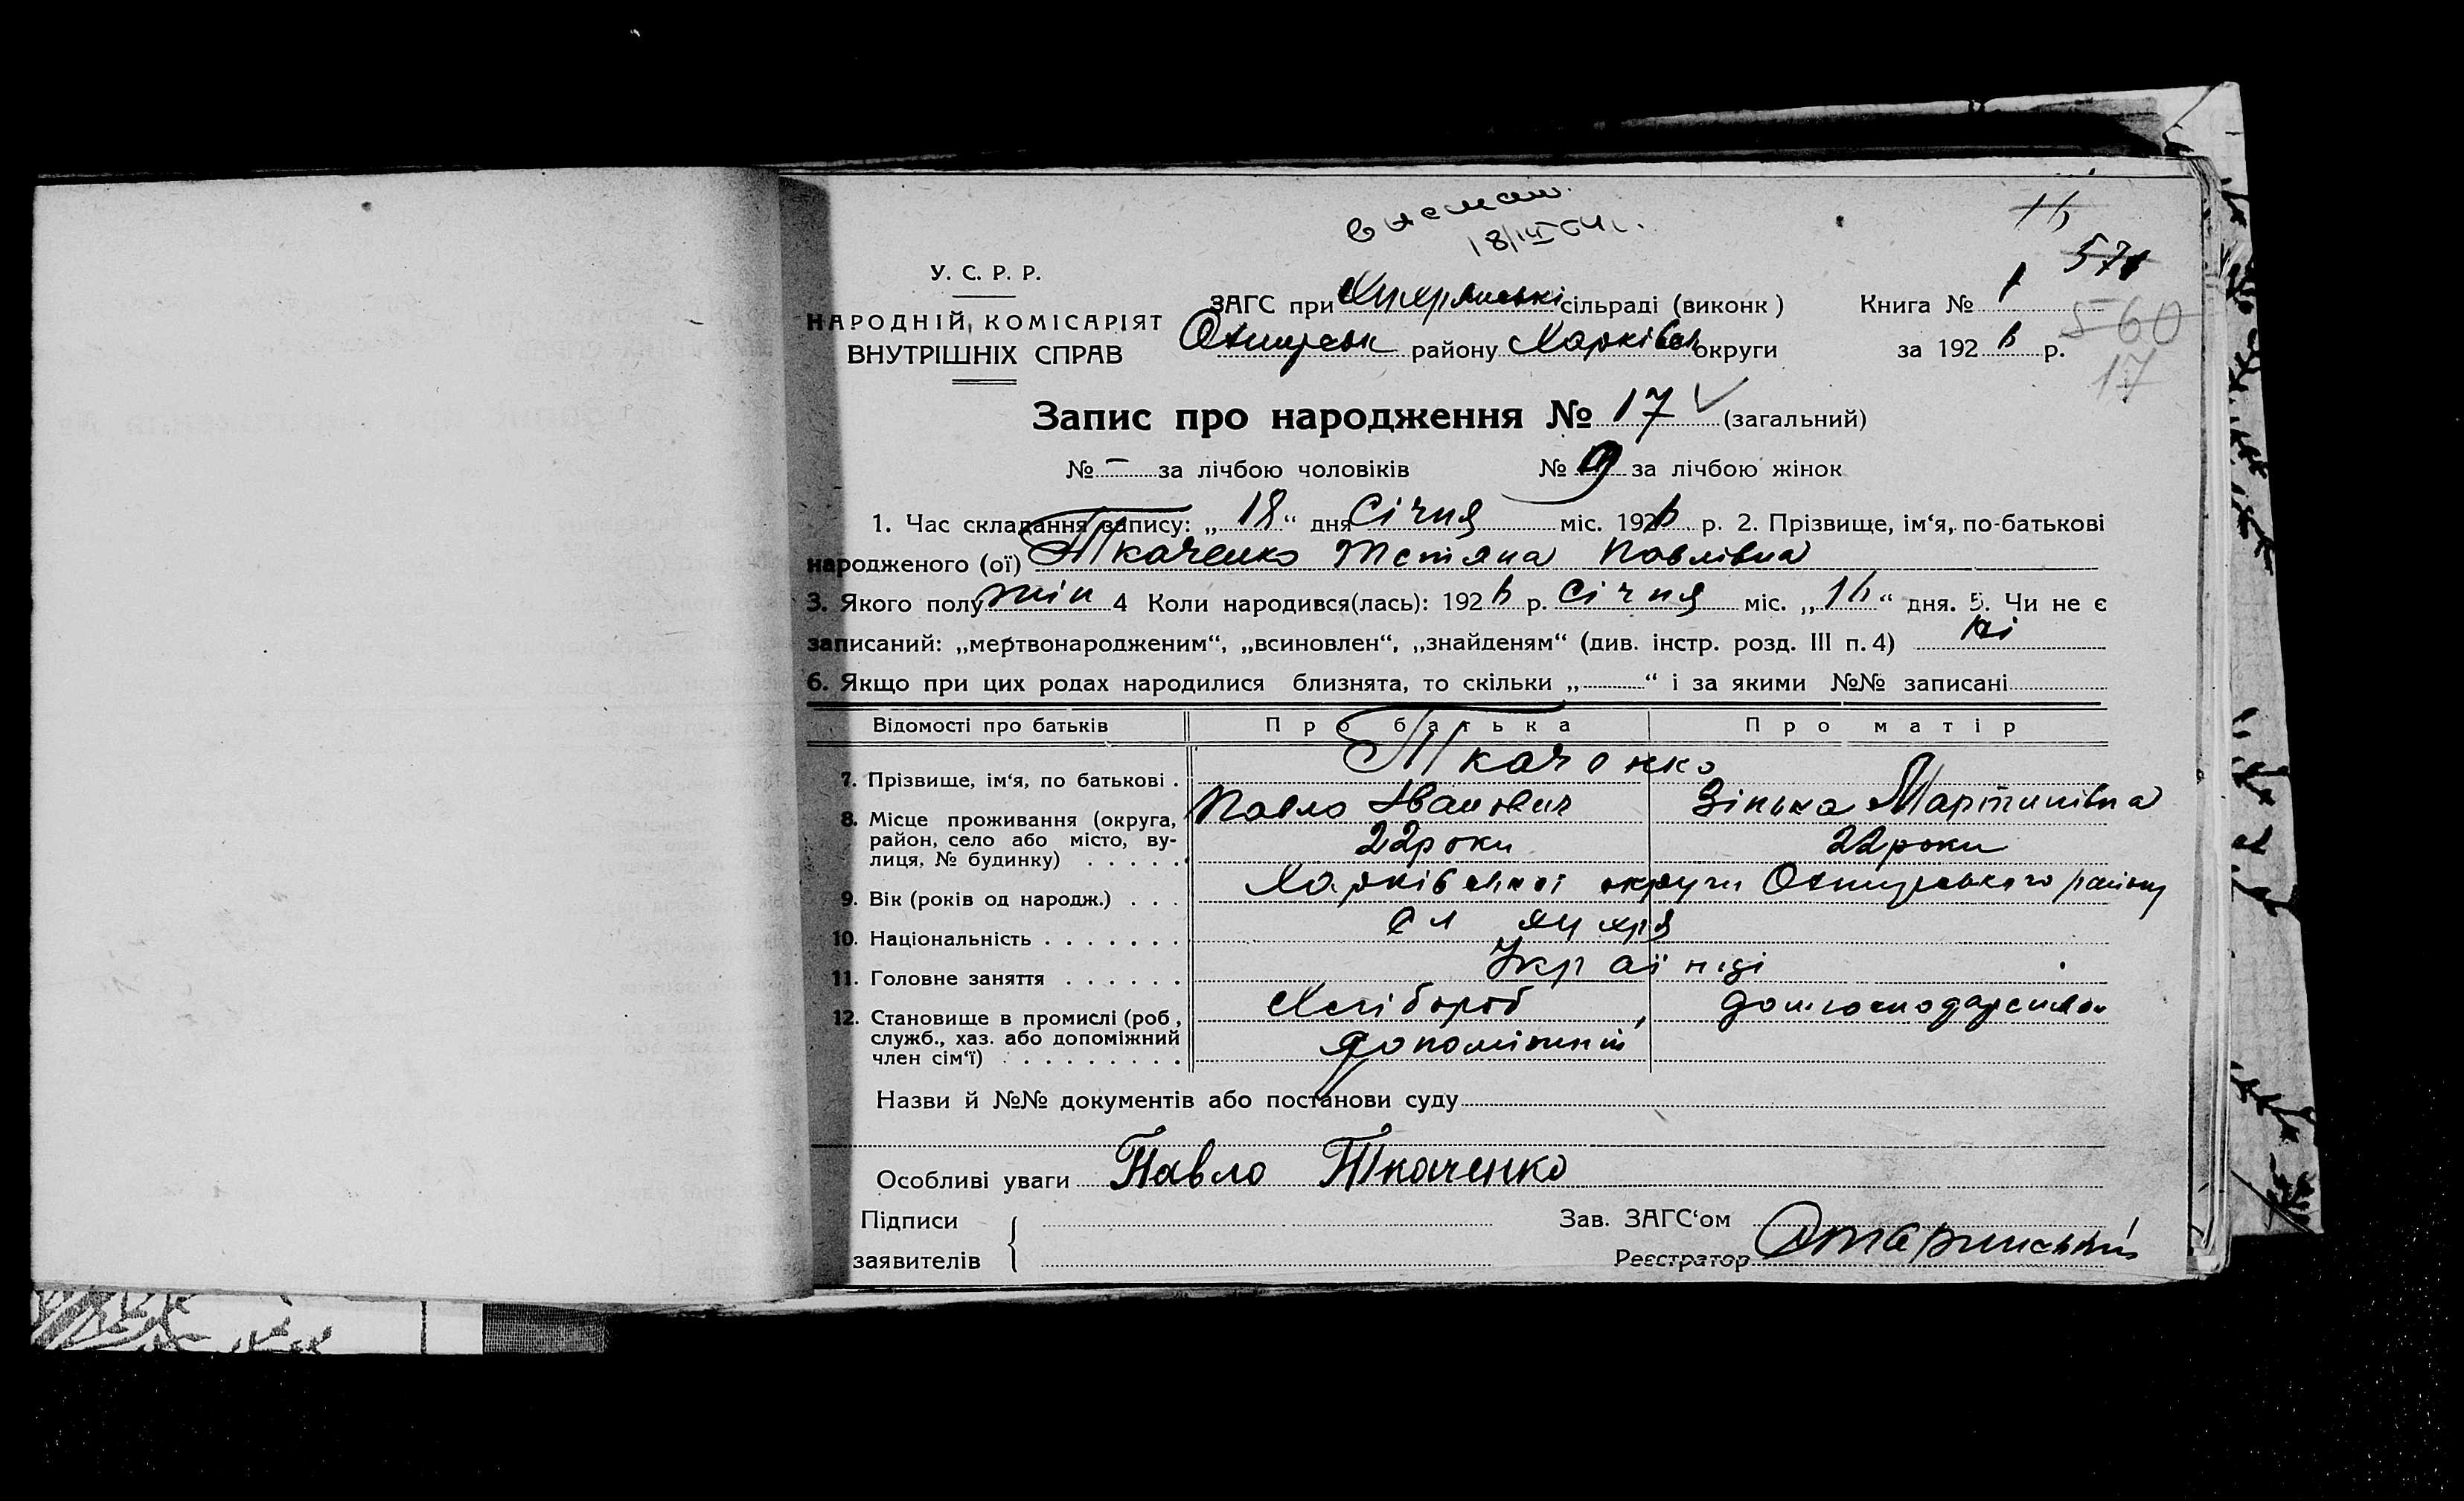 16
571
560
17
У. С. Р. Р.
НАРОДНІЙ КОМІСАРІЯТ
ВНУТРІШНІХ СПРАВ
ЗАГС при сільраді (виконк)
району Харківськ округи
Книга № 1
за 1926 р.
Запис про народження № 17 (загальний)
№ — за лічбою чоловіків № 9 за лічбою жінок
1. Час складання запису: „18“ дня Січня міс. 1926 р. 2. Прізвище, ім‘я, по-батькові
народженого (ої) Ткаченко Тетяна Павлівна
3. Якого полу жін 4 Коли народився(лась): 1926 р. Січня міс. „16“ дня. 5. Чи не є
записаний: „мертвонародженим“, „всиновлен“, „знайденям“ (див. інстр. розд. III п. 4) ні
6. Якщо при цих родах народилися близнята, то скільки „ “ і за якими №№ записані
Відомості про батьків Про батька Про матір
7. Прізвище, ім‘я, по батькові . Ткаченко
8. Місце проживання (округа, район, село або місто, вулиця, № будинку) . . . . .
Павло Іванович Зінька Мартинівна
22 роки 22 роки
9. Вік (років од народж.) . . . Харківської округи району
10. Національність . . . . . . .
11. Головне заняття . . . . . . Українці
12. Становище в промислі (роб, служб., хаз. або допоміжний член сім‘ї) . . . . . . . .
Хлібороб
допоміжний
Назви й №№ документів або постанови суду
Особливі уваги Павло Ткаченко
Підписи
заявителів
Зав. ЗАГС‘ом
Реєстратор